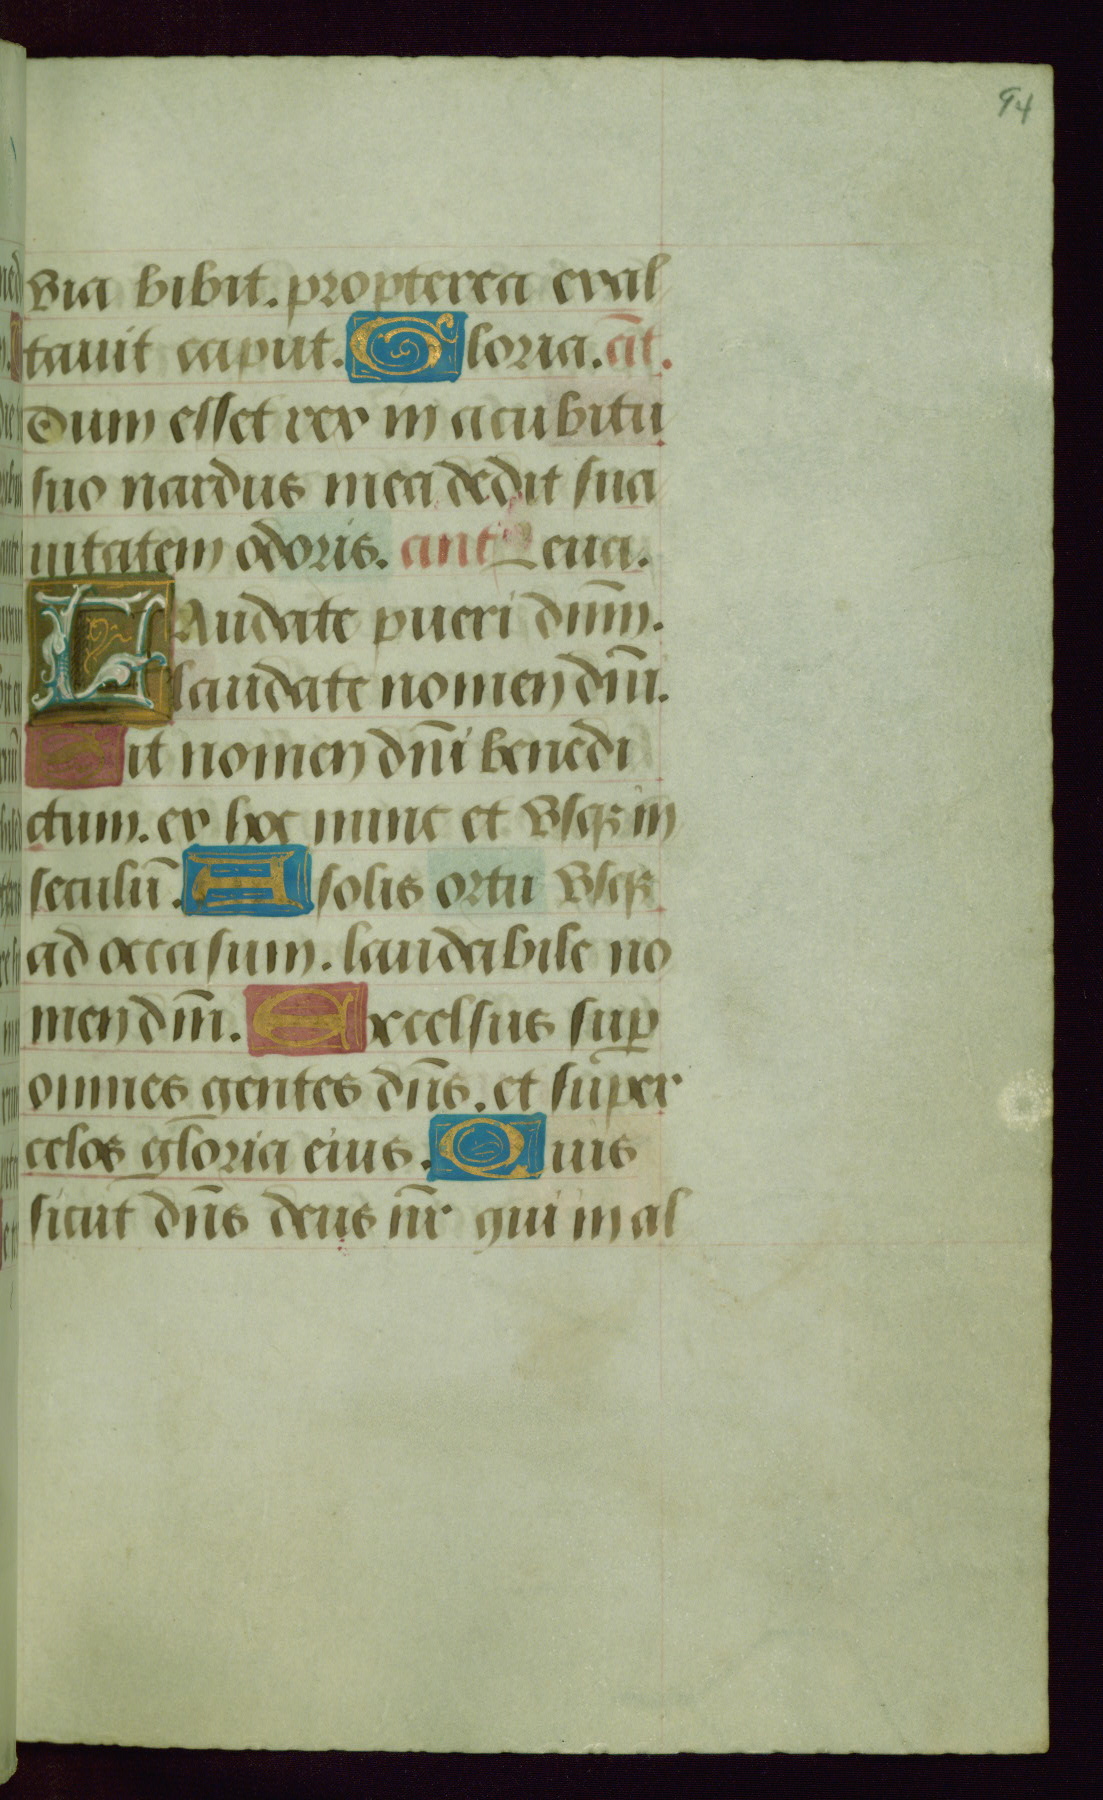 94
via bibit. propterea exal
tavit caput. Gloria. ãt.
Dum esset rex in acubitu
suo nardus mea dedit sua
uitatem odoris. ant Leua.
Laudate pueri dñm.
laudate nomen dñi.
Sit nomen dñi benedi
ctum. ex hoc nunc et vsqꝫ in
seculũ. A solis ortu vsqꝫ
ad occasum. laudabile no
men dñi. Excelsus suꝑ
omnes gentes dñs. et super
celos gloria eius. Quis
sicut dñs deus nr̃ qui in al